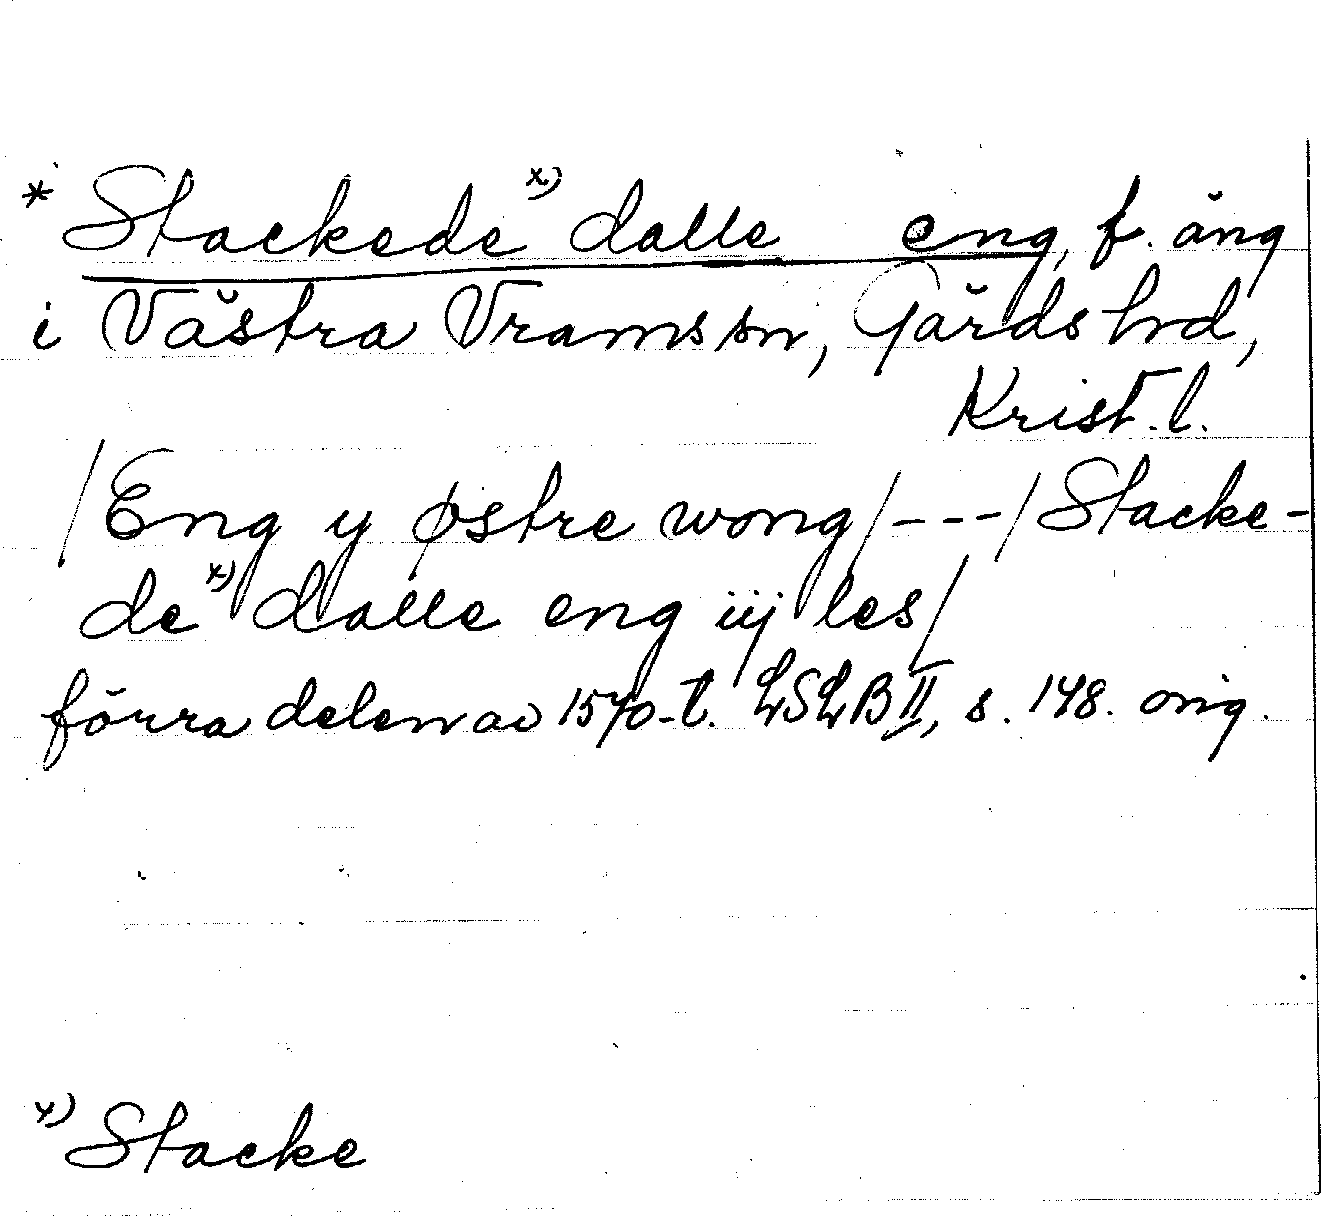 * Stackede x) dalle eng, f. äng
i Västra Vrams sn, Gärds hd,
Krist. l.
/Eng y østre wong/---/Stacke-
de x) dalle eng iij les/
förra delen av 1570-t. LSLB II, s. 148. orig.
x) Stacke